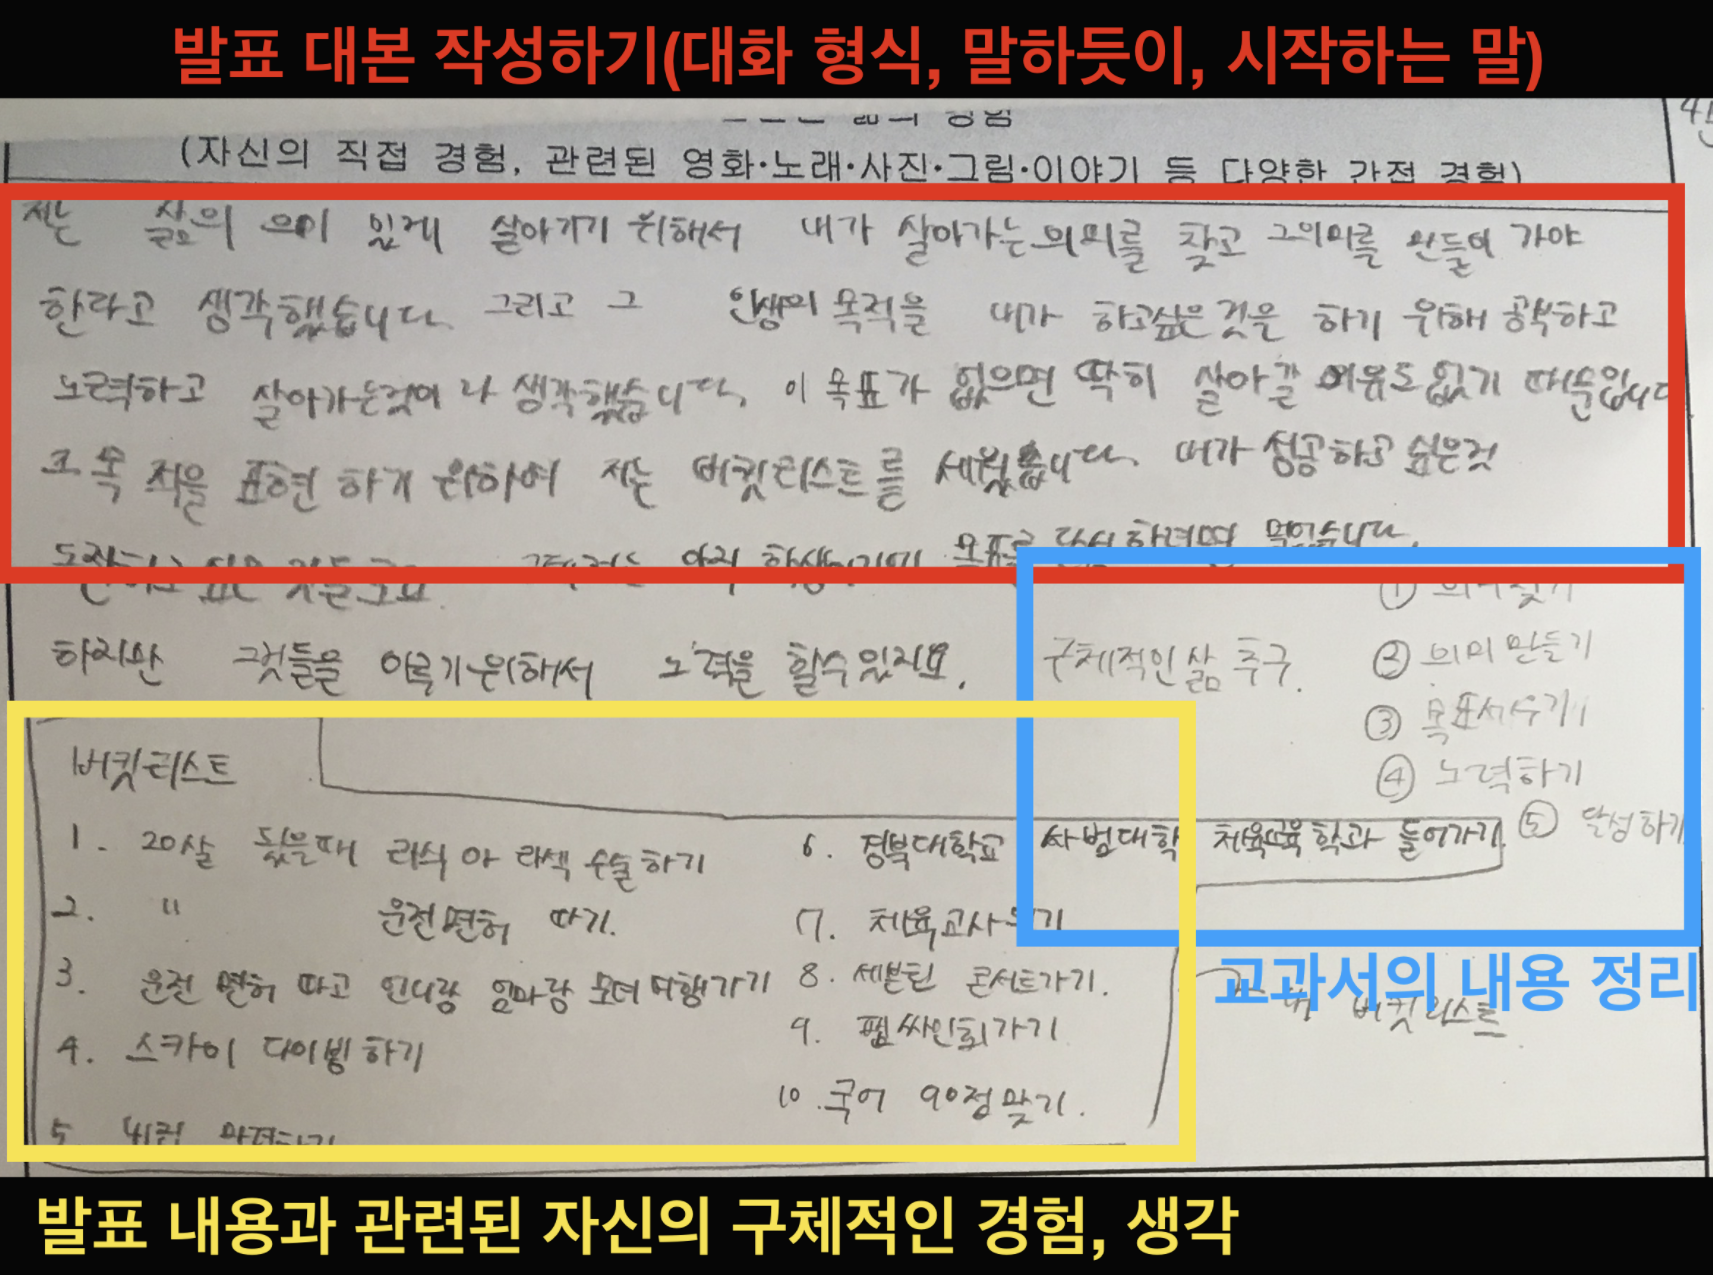 발표 대본 작성하기(대화 형식, 말하듯이, 시작하는 말)
(자신의 직접 경험, 관련된 영화·노래·사진·그림·이야기 등 다양한 간접 경험)
저는 삶의 의미 있게 살아가기 위해서 내가 살아가는 의미를 찾고 그 의미를 만들어 가야
한라고 생각했습니다. 그리고 그 인생의 목적을 내가 하고싶은 것을 하기 위해 공부하고
노력하고 살아가는것이 나 생각했습니다. 이 목표가 없으면 딱히 살아갈 이유도 없기 때문입니다.
그 목적을 표현하기 위하여 저는 버킷리스트를 세웠습니다. 내가 성공하고 싶은것
도전하고 싶은 것들로요. 아직 학생이기에 목표를 달성하려면 멀었습니다.
하지만 그것들을 이루기 위해서 노력을 할수 있지요.
구체적인 삶 추구.
① 의미찾기
② 의미 만들기
③ 목표세우기
④ 노력하기
⑤ 달성하기
버킷리스트
1. 20살 됬을때 라식 아 라섹 수술하기
2. " 운전면허 따기.
3. 운전 면허 따고 언니랑 엄마랑 모녀 여행가기
4. 스카이 다이빙하기
5.
6. 경북대학교 사범대학 체육교육학과 들어가기
7. 체육교사 되기
8. 세븐틴 콘서트가기.
9. 팬싸인회가기
10. 국어 90점 맞기.
내 버킷리스트
교과서의 내용 정리
발표 내용과 관련된 자신의 구체적인 경험, 생각